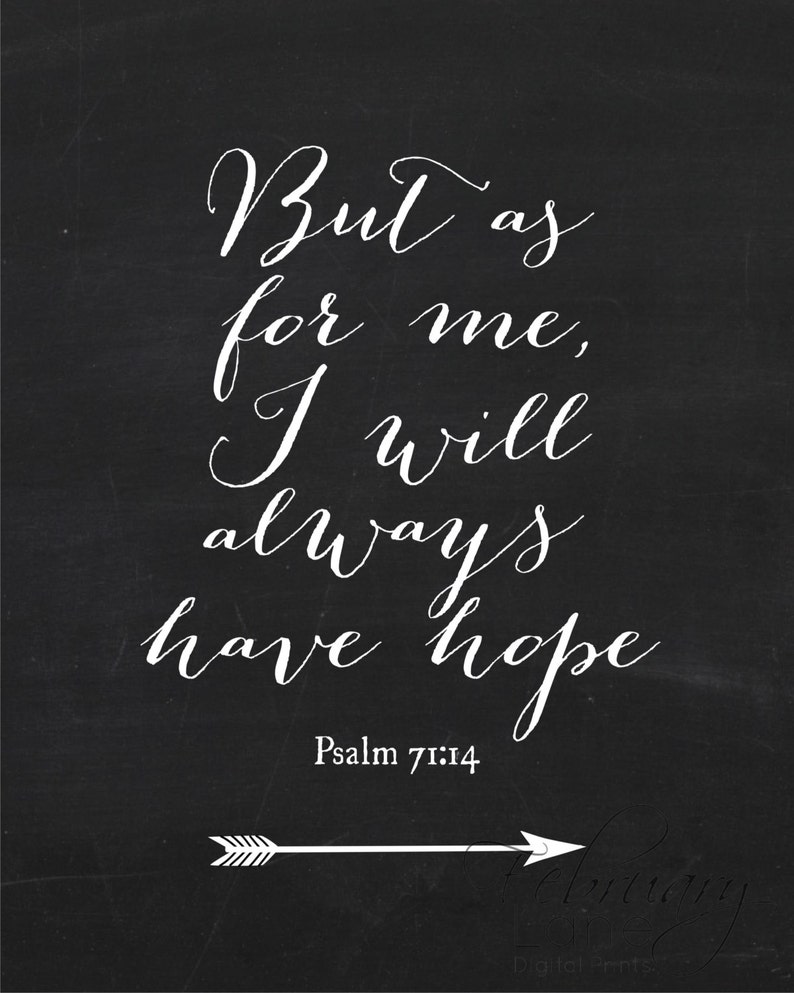 But as
for me,
I will
always
have hope
Psalm 71:14
February
Lane
Digital Prints